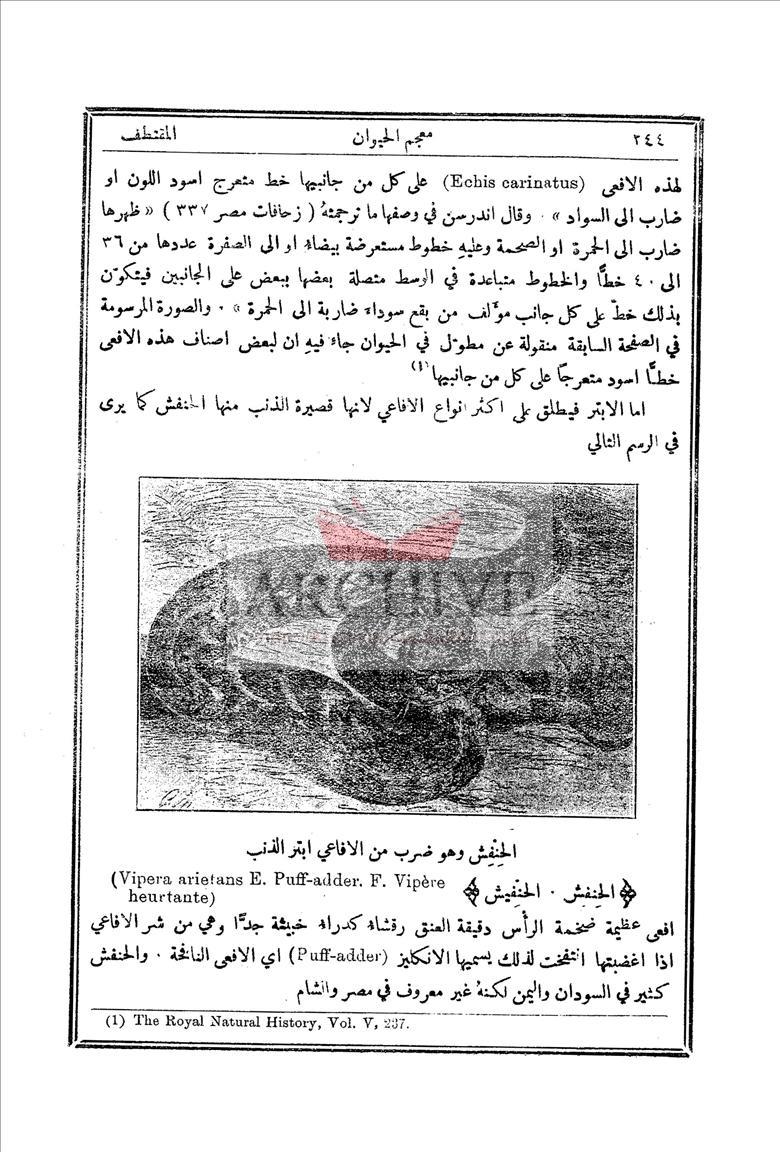 ٢٤٤ معجم الحيوان المقتطف
لهذه الافعى (Echis carinatus) على كل من جانبيها خط متعرج اسود اللون او
ضارب الى السواد » . وقال اندرسن في وصفها ما ترجمتهُ ( زحافات مصر ٣٣٧ ) « ظهرها
ضارب الى الحمرة او الصحمة وعليهِ خطوط مستعرضة بيضاء او الى الصفرة عددها من ٣٦
الى ٤٠ خطًّا والخطوط متباعدة في الوسط متصلة بعضها ببعض على الجانبين فيتكوّن
بذلك خطّ على كل جانب مؤلف من بقع سوداء ضاربة الى الحمرة » . والصورة المرسومة
في الصفحة السابقة منقولة عن مطوّل في الحيوان جاء فيهِ ان لبعض اصناف هذه الافعى
خطًّا اسود متعرجًا على كل من جانبيها (١)
اما الابتر فيطلق على اكثر انواع الافاعي لانها قصيرة الذنب منها الحنفش كما يرى
في الرسم التالي
ARCHIVE
الحِنْفِش وهو ضرب من الافاعي ابتر الذنب
﴿ الحنفش . الحنْفيش ﴾ (Vipera arietans E. Puff-adder. F. Vipère
heurtante)
افعى عظيمة ضخمة الرأس دقيقة العنق رقشاء كدراء خبيثة جدًّا وهي من شر الافاعي
اذا اغضبتها انتفخت لذلك يسميها الانكليز (Puff-adder) اي الافعى النافخة . والحنفش
كثير في السودان واليمن لكنهُ غير معروف في مصر والشام
(1) The Royal Natural History, Vol. V, 237.